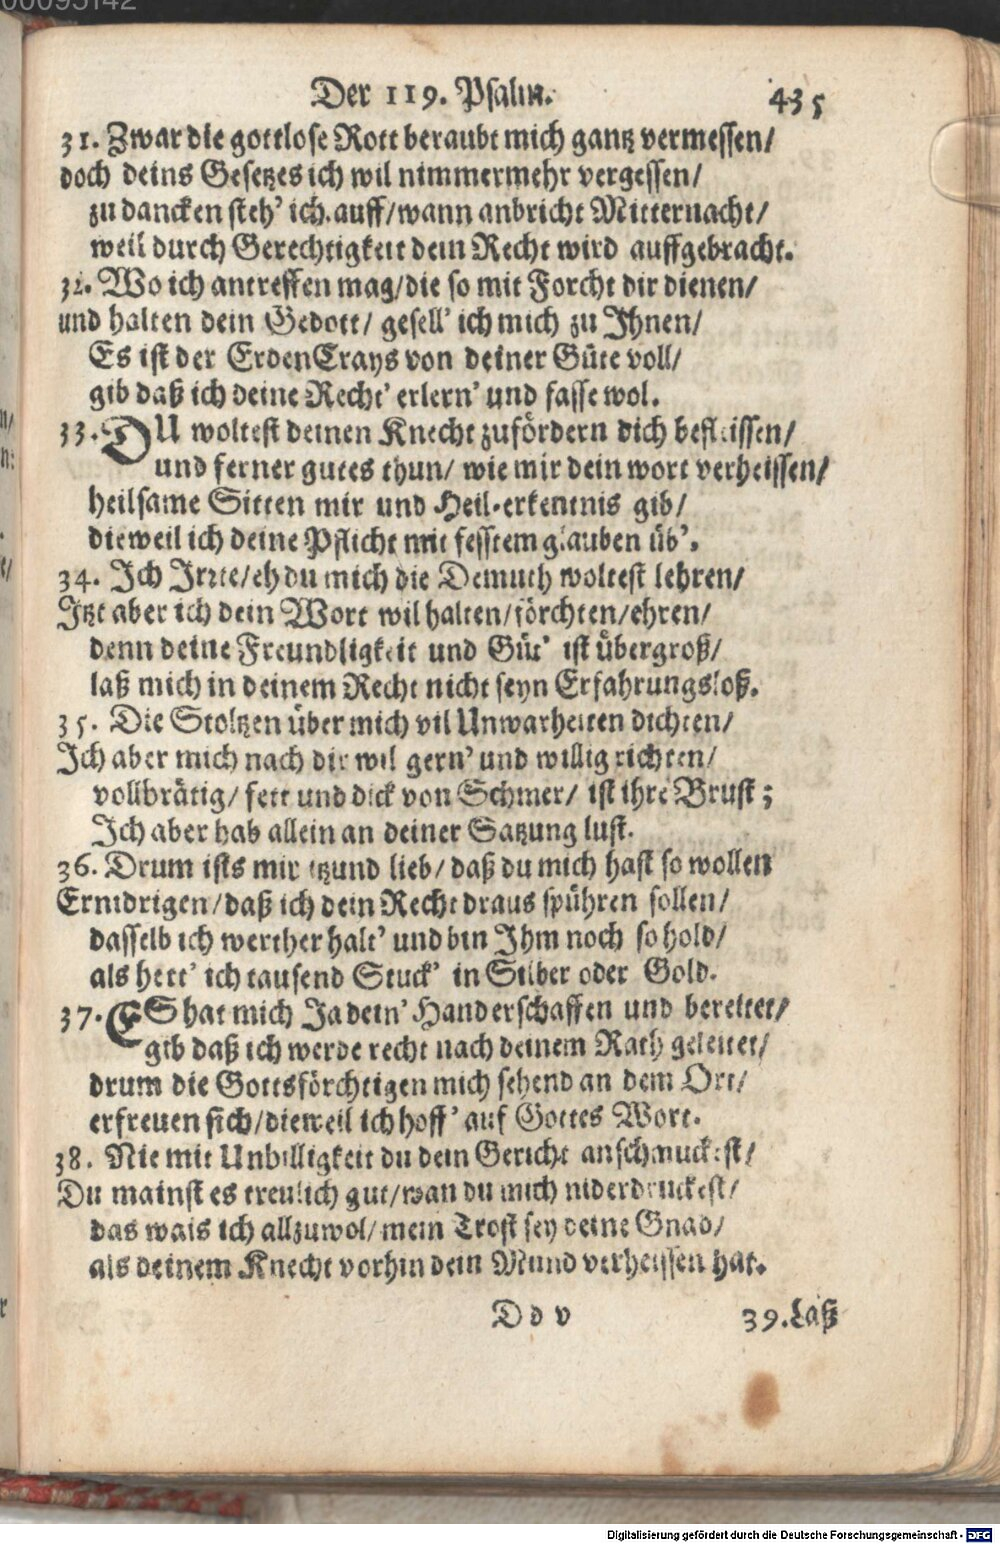 00095142
Der 119. Psalm. 435
31. Zwar die gottlose Rott beraubt mich gantz vermessen/
doch deins Gesetzes ich wil nimmermehr vergessen/
zu dancken steh' ich auff/wann anbricht Mitternacht/
weil durch Gerechtigkeit dein Recht wird auffgebracht.
32. Wo ich antreffen mag/die so mit Forcht dir dienen/
und halten dein Gebott/ gesell' ich mich zu Ihnen/
Es ist der ErdenCrays von deiner Güte voll/
gib daß ich deine Recht' erlern' und fasse wol.
33. DU woltest deinen Knecht zufördern dich befleissen/
und ferner gutes thun/ wie mir dein wort verheissen/
heilsame Sitten mir und Heil-erkentnis gib/
dieweil ich deine Pflicht mit fesstem glauben üb'.
34. Ich Irrte/eh du mich die Demuth woltest lehren/
Itzt aber ich dein Wort wil halten/förchten/ehren/
denn deine Freundligkeit und Güt' ist übergroß/
laß mich in deinem Recht nicht seyn Erfahrungsloß.
35. Die Stoltzen über mich vil Unwarheiten dichten/
Ich aber mich nach dir wil gern' und willig richten/
vollbrätig/ fett und dick von Schmer/ ist ihre Brust;
Ich aber hab allein an deiner Satzung lust.
36. Drum ists mir itzund lieb/ daß du mich hast so wollen
Ernidrigen/daß ich dein Recht draus spühren sollen/
dasselb ich werther halt' und bin Ihm noch so hold/
als hett' ich tausend Stuck' in Silber oder Gold.
37. ES hat mich Ja dein' Hand erschaffen und bereitet/
gib daß ich werde recht nach deinem Rath geleitet/
drum die Gottsförchtigen mich sehend an dem Ort/
erfreuen sich/dieweil ich hoff' auf Gottes Wort.
38. Nie mit Unbilligkeit du dein Gericht anschmuckest/
Du mainst es treulich gut/wan du mich niderdruckest/
das wais ich allzuwol/mein Trost sey deine Gnad/
als deinem Knecht vorhin dein Mund verheissen hat.
D d v 39. Laß
Digitalisierung gefördert durch die Deutsche Forschungsgemeinschaft - DFG